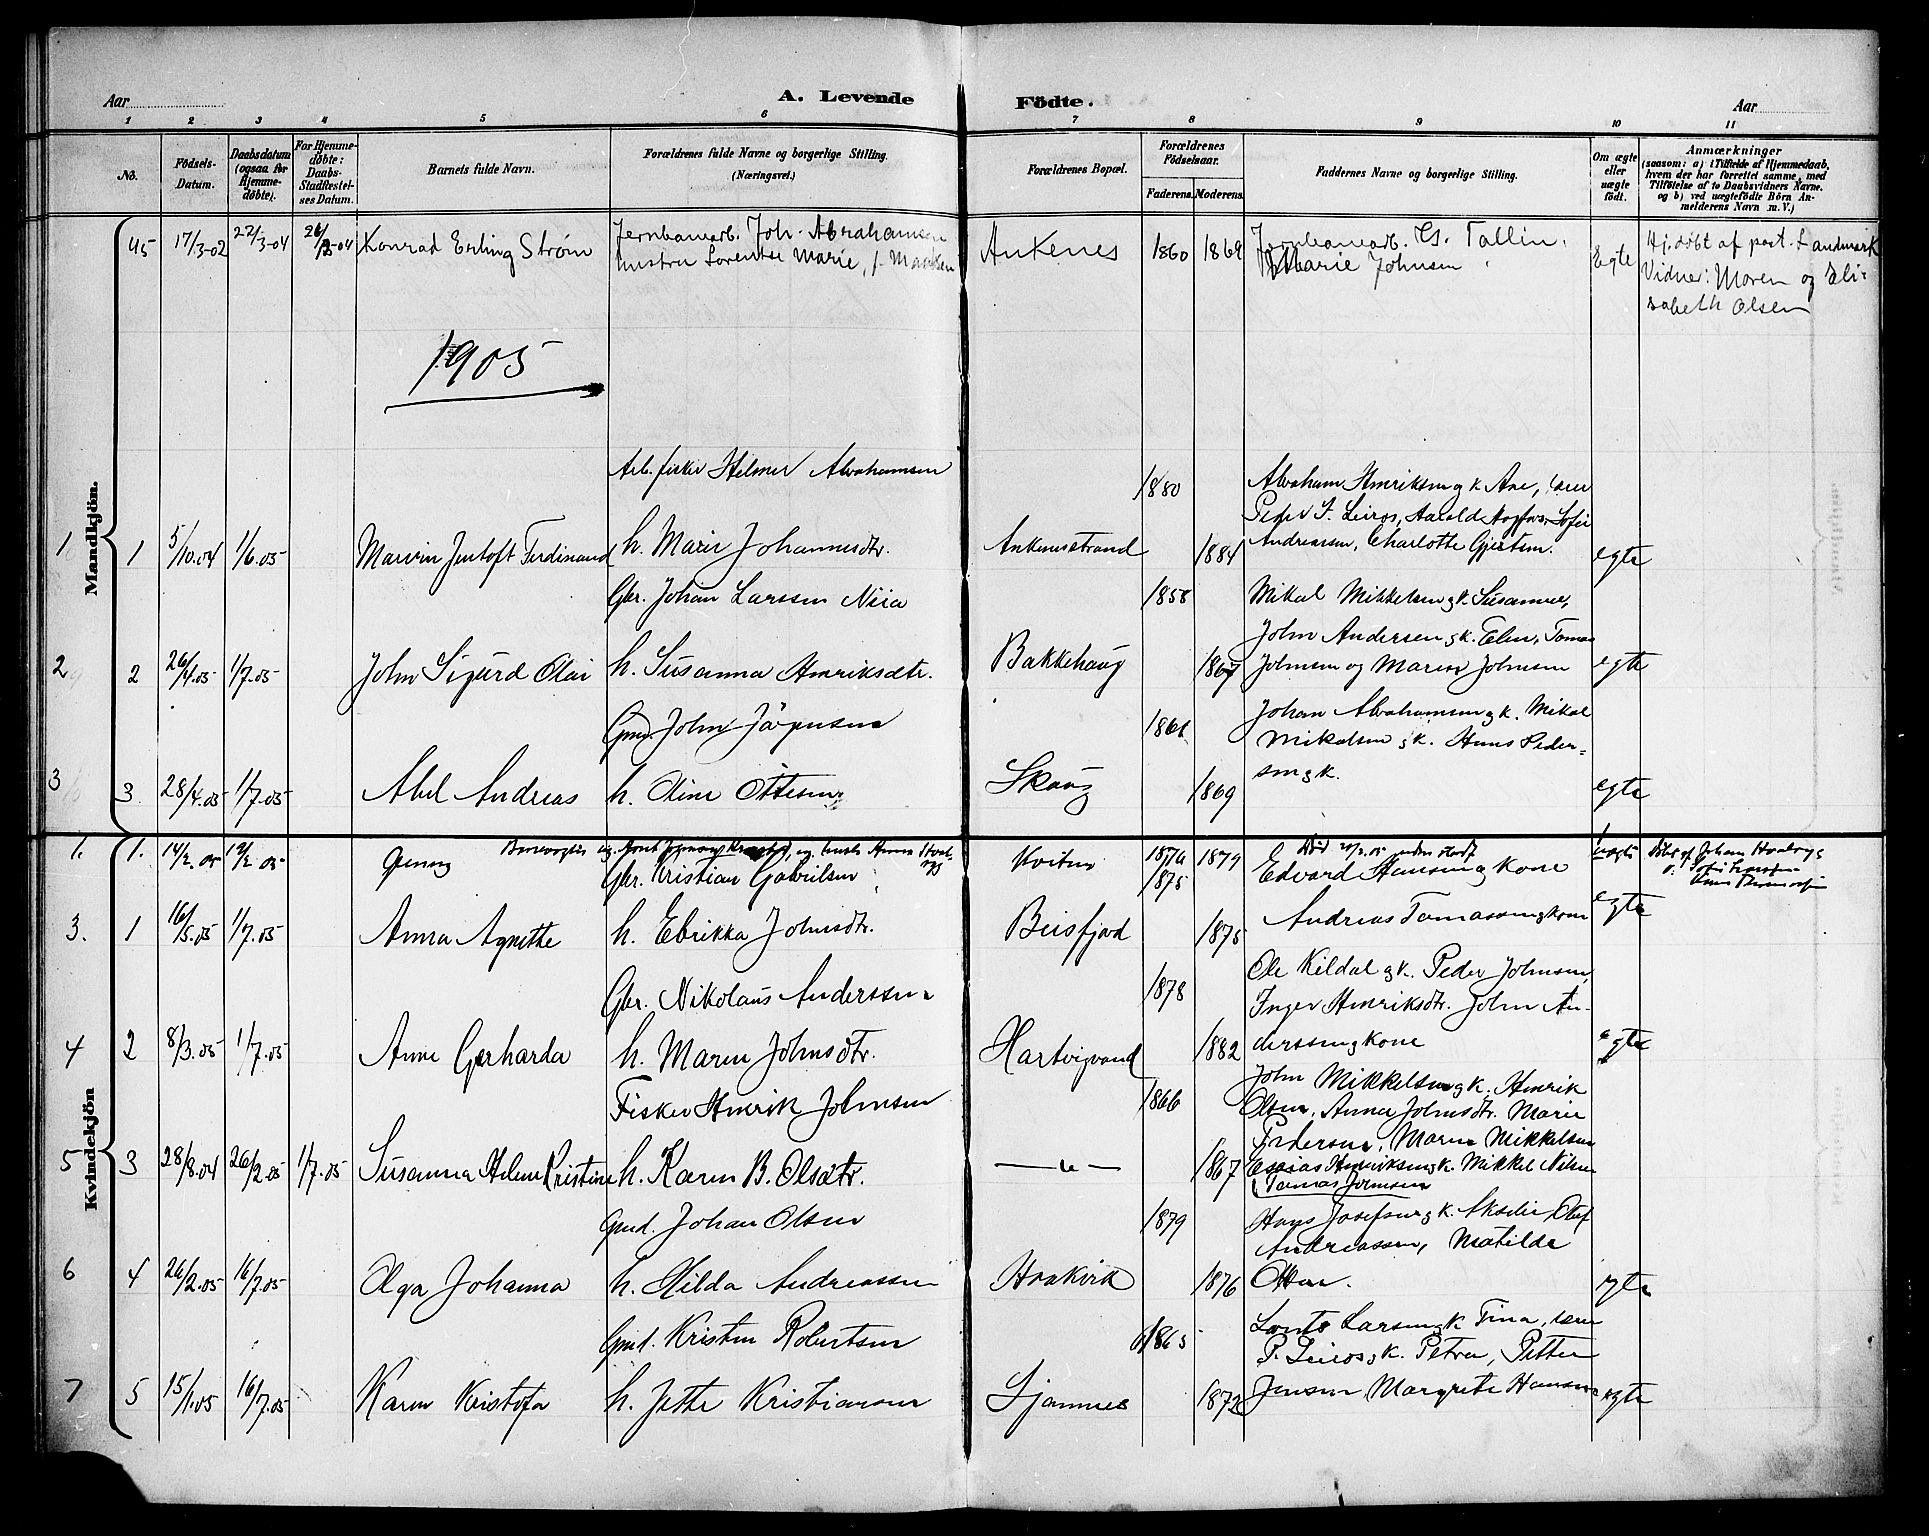 Aar
A. Levende Födte.
Aar
1 2 3 4 5 6 7 8 9 10 11
No.
Födsels-Datum.
Daabsdatum (ogsaa for Hjemmedöbte).
For Hjemmedöbte: Daabs-Stadfæstelses Datum.
Barnets fulde Navn.
Forældrenes fulde Navne og borgerlige Stilling. (Næringsvei.)
Forældrenes Bopæl.
Forældrenes Födselsaar.
Faderens. Moderens.
Faddernes Navne og borgerlige Stilling.
Om ægte eller uægte födt.
Anmærkninger
(saasom: a) i Tilfælde af Hjemmedaab, hvem der har forrettet samme, med Tilföielse af to Daabsvidners Navne. og b) ved uægtefödte Börn Anmelderens Navn m. V.)
Mandkjön.
45 17/3-02 22/3-04 26/3-04 Konrad Erling Ström
Jernbanearb. Joh. Abrahamsen
hustru Lorentse Marie, f. Madsen
Ankenes 1860 1869
Jernbanearb. Tallin.
Marie Johnsen
Egte
Hj. döbt af past. Landmark
Vidner: Moren og Eli-
sabeth Olsen
1905
1 1 5/10.04 1/6.05 Marvin Jentoft Ferdinand
Arb. fisker Helmer Abrahamsen
h. Marie Johannesdtr.
Ankenesstrand 1880 1884
Abraham Henriksen g k Ane, lærer
Peder S. Leiros, Sofie
Andreassen, Charlotte Gjertsen.
egte
2 2 26/4.05 1/7.05 John Sigurd Olai
Gbr. Johan Larssen Niia
h. Susanna Henriksdtr.
Bakkehaug 1858 1867
Mikal Mikkelsen g k. Susanne,
John Andersen g k. Elen, Tomas
Johnsen og Maren Johnsen
egte
3 3 28/4.05 1/7.05 Abel Andreas
Gmd. John Jörgensen
h. Oline Ottesen
Skaug 1861 1869
Johan Abrahamsen g k. Mikal
Mikalsen g k. Hans Peder-
sen g k.
egte
Kvindekjön
1. 1. 14/2 05 19/2 05 Jenny
Kvitnes 1874 1879
Död 20/2 05
uægte
döbt af Johan Hvalryg
3. 1 16/5.05 1/7.05 Anna Agnethe
Gbr. Kristian Gabrielsen
h. Ebrikka Johnsdtr.
Beisfjord 1875 1875
Edvard Hansen og kone
Andreas Tomassen og kone
egte
4 2 8/3.05 1/7.05 Anne Gerharda
Gbr. Nikolaus Anderssen
h. Maren Johnsdtr.
Hartvigvand 1878 1882
Ole Kildal g k. Peder Johnsen,
Inger Henriksdtr. John An-
derssen og kone
egte
5 3 28/8.04 26/2.05 1/7.05 Susanna Helene Kristine
Fisker Henrik Johnsen
h. Karen B. Olsdtr.
— " — 1866 1867
John Mikkelsen g k. Henrik
Olsen, Anna Johnsdtr. Marie
Pedersen, Maren Mikkelsen
Esaias Henriksen g k. Mikkel Nilsen
Tomas Johnsen
6 4 26/2.05 16/7.05 Olga Johanna
Gmd. Johan Olsen
h. Hilda Andreassen
Haakvik 1879 1876
Hans Josefsen g k. Olaf
Andreassen, Matilde
egte
7 5 15/1.05 16/7.05 Karen Kristofa
Gmd. Kristen Robertsen
h. Jette Kristiansen
Sjomnes 1865 1872
Larsen g k Tina, lærer
P. Leiros g k. Petra, Petter
Jensen Margrete Hansen
egte